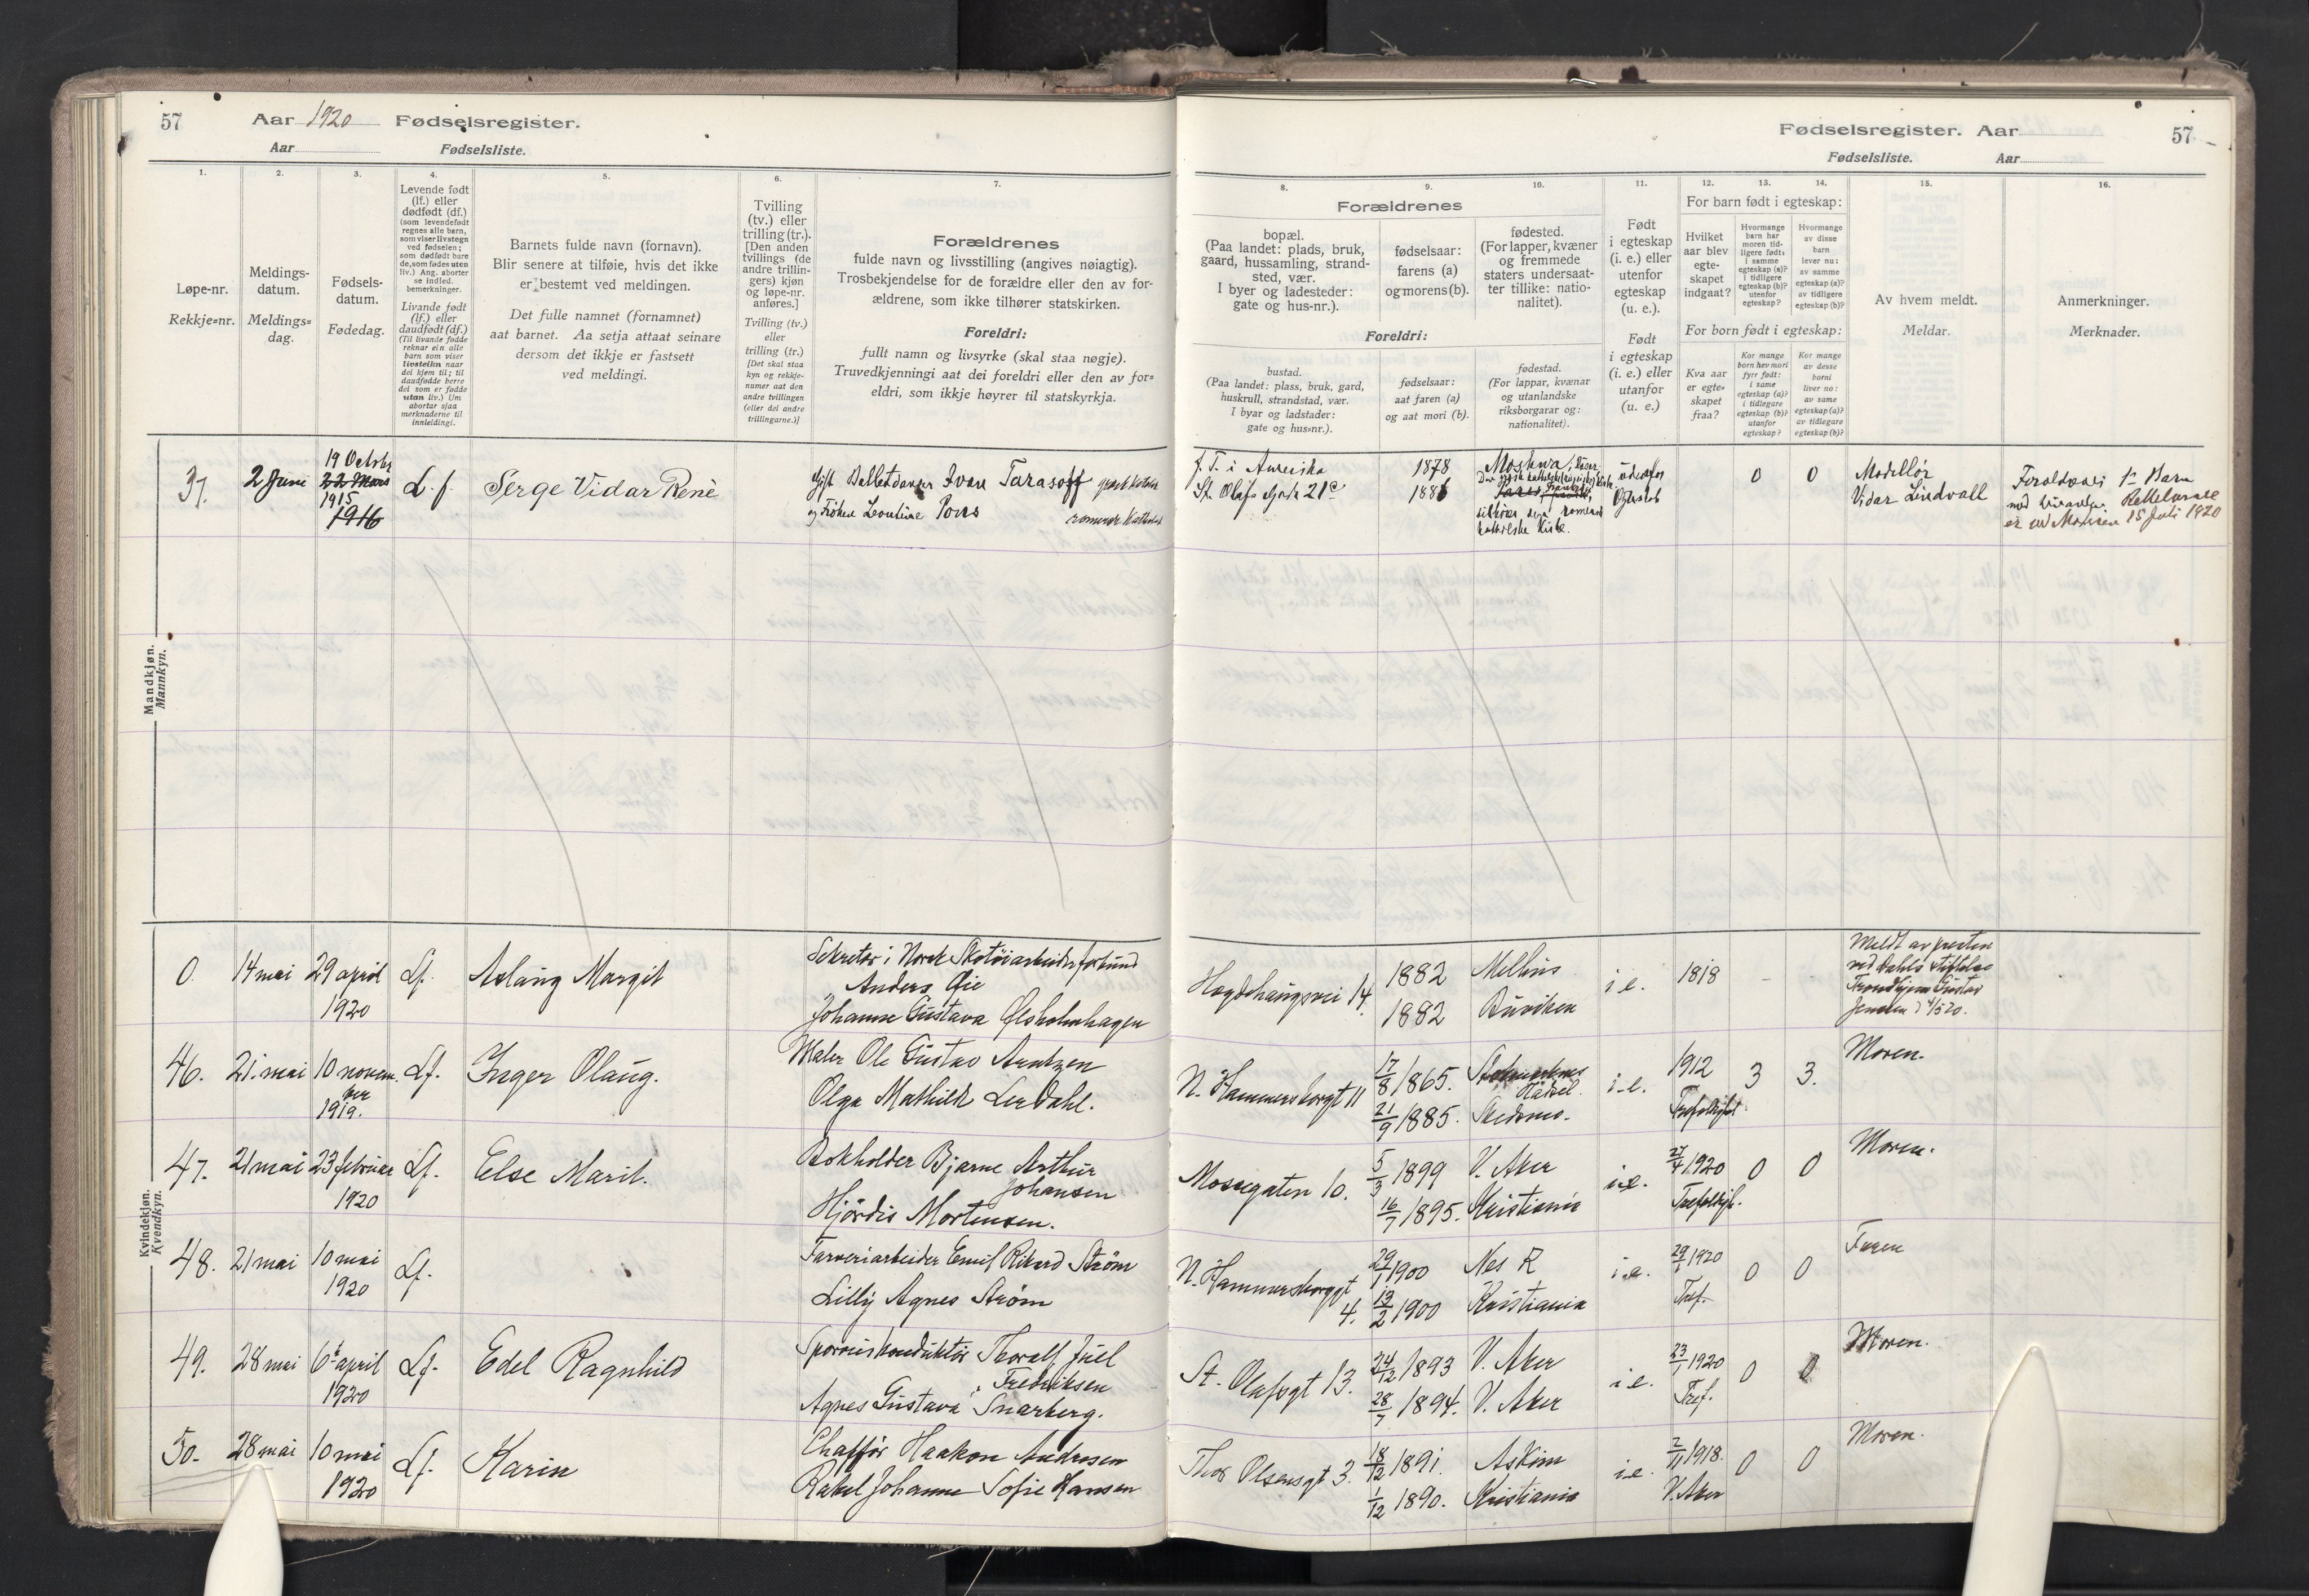 57
Aar 1920 Fødselsregister.
Aar Fødselsliste.
1.
2.
3.
4.
5.
6.
7.
Løpe-nr.
Rekkje=nr.
Meldings-
datum.
Meldings=
dag.
Fødsels-
datum.
Fødedag.
Levende født
(lf.) eller
dødfødt (df.)
(som levendefødt
regnes alle barn,
som viser livstegn
ved fødselen;
som dødfødt bare
de, som fødes uten
liv.) Ang. aborter
se indled.
bemerkninger.
Livande født
(lf.) eller
daudfødt (df.)
(Til livande fødde
reknar ein alle
barn som viser
livsteikn naar
dei kjem til; til
daudfødde berre
dei som er fødde
utan liv.) Um
abortar sjaa
merknaderne til
innleidingi.
Barnets fulde navn (fornavn).
Blir senere at tilføie, hvis det ikke
er bestemt ved meldingen.
Det fulle namnet (fornamnet)
aat barnet. Aa setja attaat seinare
dersom det ikkje er fastsett
ved meldingi.
Tvilling
(tv.) eller
trilling (tr.).
[Den anden
tvillings (de
andre trillin-
gers) kjøn
og løpe-nr.
anføres.]
Tvilling (tv.)
eller
trilling (tr.)
[Det skal staa
kyn og rekkje-
numer aat den
andre tvillingen
(eller dei andre
trillingarne.)]
Forældrenes
fulde navn og livsstilling (angives nøiagtig).
Trosbekjendelse for de forældre eller den av for-
ældrene, som ikke tilhører statskirken.
Foreldri:
fullt namn og livsyrke (skal staa nøgje).
Truvedkjenningi aat dei foreldri eller den av for=
eldri, som ikkje høyrer til statskyrkja.
Mandkjøn.
Mannkyn.
37. 2 Juni 19 Octobr
22 Mars
1915
1916
L. f. Serge Vidar Renè
Gift Balletdanser Ivan Tarasoff
og Frøken Leontine Pons
romersk Katholsk
Kvindekjøn.
Kvendkyn.
0. 14 mai 29 april 1920 Lf. Aslaug Margit
Sekretær i Norsk Skotøiarbeiderforbund
Anders Øie
Johanne Gustava Olsholmhagen
46. 21. mai 10 novem-
ber
1919. Lf. Inger Olaug.
Maler Ole Gustav Arntzen
Olga Mathilde Lerdahl.
47. 21 mai 23 februar 1920 Lf. Else Marit.
Bokholder Bjarne Arthur
Johansen
Hjørdis Mortensen.
48. 21 mai 10 mai 1920 Lf.
Farveriarbeider Emil Rikard Strøm
Lilly Agnes Strøm
49. 28 mai 6 april 1920 Lf. Edel Ragnhild
Sporveiskonduktør Thoralf Juel
Fredriksen
Agnes Gustava Snarberg.
50. 28 mai 10 mai 1920 Lf. Karin
Chafför Haakon Andresen
Rakel Johanne Sofie Hansen
Fødselsregister. Aar
57
Fødselsliste. Aar
8.
9.
10.
11.
12.
13.
14.
15.
16.
Forældrenes
bopæl.
(Paa landet: plads, bruk,
gaard, hussamling, strand-
sted, vær.
I byer og ladesteder:
gate og hus-nr.).
fødselsaar:
farens (a)
og morens (b).
fødested.
(For lapper, kvæner
og fremmede
staters undersaat-
ter tillike: natio-
nalitet).
Foreldri:
bustad.
(Paa landet: plass, bruk, gard,
huskrull, strandstad, vær.
I byar og ladstader:
gate og hus=nr.).
fødselsaar:
aat faren (a)
og aat mori (b).
fødestad.
(For lappar, kvænar
og utanlandske
riksborgarar og:
nationalitet).
Født
i egteskap
(i. e.) eller
utenfor
egteskap
(u. e.).
Født
i egteskap
(i. e.) eller
utanfor
(u. e.)
For barn født i egteskap:
Hvilket
aar blev
egte-
skapet
indgaat?
Hvormange
barn har
moren tid-
ligere født:
i samme
egteskap (a)?
i tidligere
egteskap (b)?
utenfor
egteskap?
Hvormange
av disse
barn
lever nu:
av samme
egteskap (a)?
av tidligere
egteskap (b)?
For born født i egteskap:
Kva aar
er egte=
skapet
fraa?
Kor mange
born hev mori
fyrr født:
i same
egteskap (a)?
i tidlegare
egteskap (b)?
utanfor
egteskap?
Kor mange
av desse
borni
liver no:
av same
egteskap (a)?
av tidlegare
egteskap (b)?
Av hvem meldt.
Meldar.
Anmerkninger.
Merknader.
f. T. i Amerika 1878 Moskva,
St. Olafs Gade 21c 1881
tilhører den romersk
katholske Kirke.
0 0 Modellør
Vidar Lindvall
15 Juli 1920
Hegdehaugsvei 14. 1882 Melhus
1882 Buviken
i e. 1818 - -
Meldt av presten
ved Dahls Stiftelse
Trondhjem Gustav
Jensen
N. Hammersborggt 11 17/8 1865.
21/9 1885. Skedsmo.
i. e. 1912 3 3. Moren.
Mossegaten 10. 5/3 1899 V. Aker
16/7 1895. Kristiania
i. e. 27/4 1920 0 0 Moren.
N. Hammersborggt
4. 29/1 1900 Nes R
13/2 1900 Kristiania
i. e. 29/1 1920
Tref. 0 0 Faren
St. Olafsgt 13. 24/12 1893 V. Aker
28/7 1894. V. Aker
i e. 23/1 1920
Tref. 0 0 Moren.
Thor Olsensgt 3. 18/12 1891. Askim
1/12 1890. Kristiania
i. e. 2/11 1918.
V. Aker 0 0 Moren.